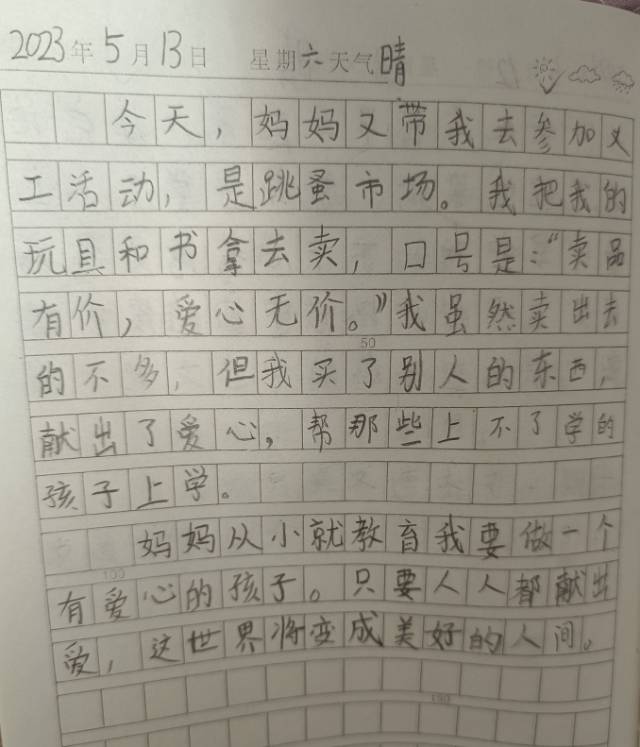 2023年5月13日 星期六天气晴
今天，妈妈又带我去参加义
工活动，是跳蚤市场。我把我的
玩具和书拿去卖，口号是："卖品
有价，爱心无价。"我虽然卖出去
的不多，但我买了别人的东西，
50
献出了爱心，帮那些上不了学的
孩子上学。
妈妈从小就教育我要做一个
100
有爱心的孩子。只要人人都献出
爱，这世界将变成美好的人间。